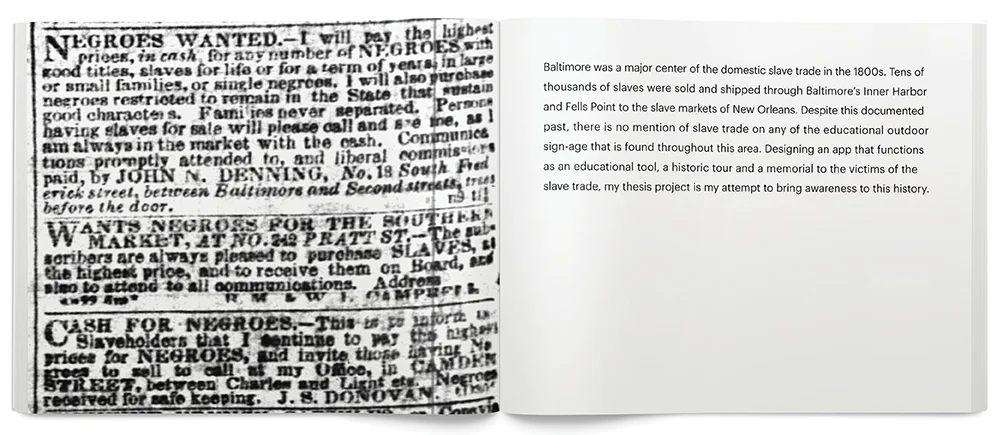 NEGROES WANTED.—I will pay the highest
prices, in cash, for any number of NEGROES with
good titles, slaves for life or for a term of years, in large
or small families, or single negroes. I will also purchase
negroes restricted to remain in the State that sustain
good characters. Families never separated. Persons
having slaves for sale will please call and see me, as I
am always in the market with the cash. Communica
tions promptly attended to, and liberal commissions
paid, by JOHN N. DENNING, No. 18 South Fred
erick street, between Baltimore and Second streets, trees
before the door.
WANTS NEGROES FOR THE SOUTHERN
MARKET, AT NO. 242 PRATT ST.—The sub-
scribers are always pleased to purchase SLAVES, at
the highest price, and to receive them on Board, and
also to attend to all communications. Address
CAMPBELL
CASH FOR NEGROES.—This is to inform
Slaveholders that I continue to pay the highest
prices for NEGROES, and invite those having Ne
groes to sell to call at my Office, in CAMDEN
STREET, between Charles and Light sts. Negroes
received for safe keeping. J. S. DONOVAN.
Baltimore was a major center of the domestic slave trade in the 1800s. Tens of
thousands of slaves were sold and shipped through Baltimore's Inner Harbor
and Fells Point to the slave markets of New Orleans. Despite this documented
past, there is no mention of slave trade on any of the educational outdoor
sign-age that is found throughout this area. Designing an app that functions
as an educational tool, a historic tour and a memorial to the victims of the
slave trade, my thesis project is my attempt to bring awareness to this history.